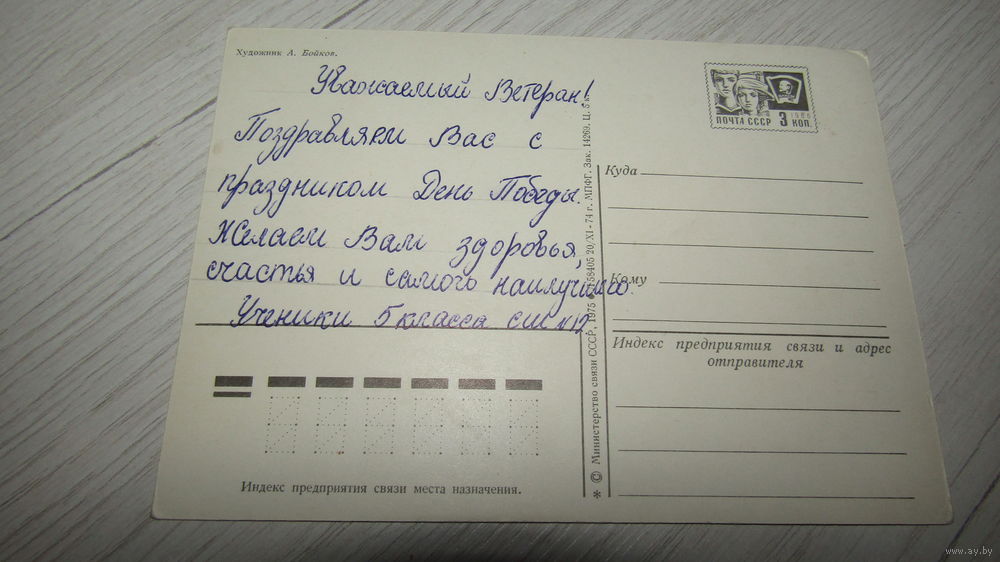 Художник А. Бойков.
Уважаемый Ветеран!
Поздравляем Вас с
праздником День Победы.
Желаем Вам здоровья,
счастья и самого наилучшего.
Ученики 5 класса сш №12.
ПОЧТА СССР 3 КОП.
1966
Куда
Кому
Индекс предприятия связи и адрес
отправителя
Индекс предприятия связи места назначения.
* © Министерство связи СССР, 1975 58405 20/XI-74 г. МПФГ. Зак. 14269. Ц. 5 к.
www.ay.by